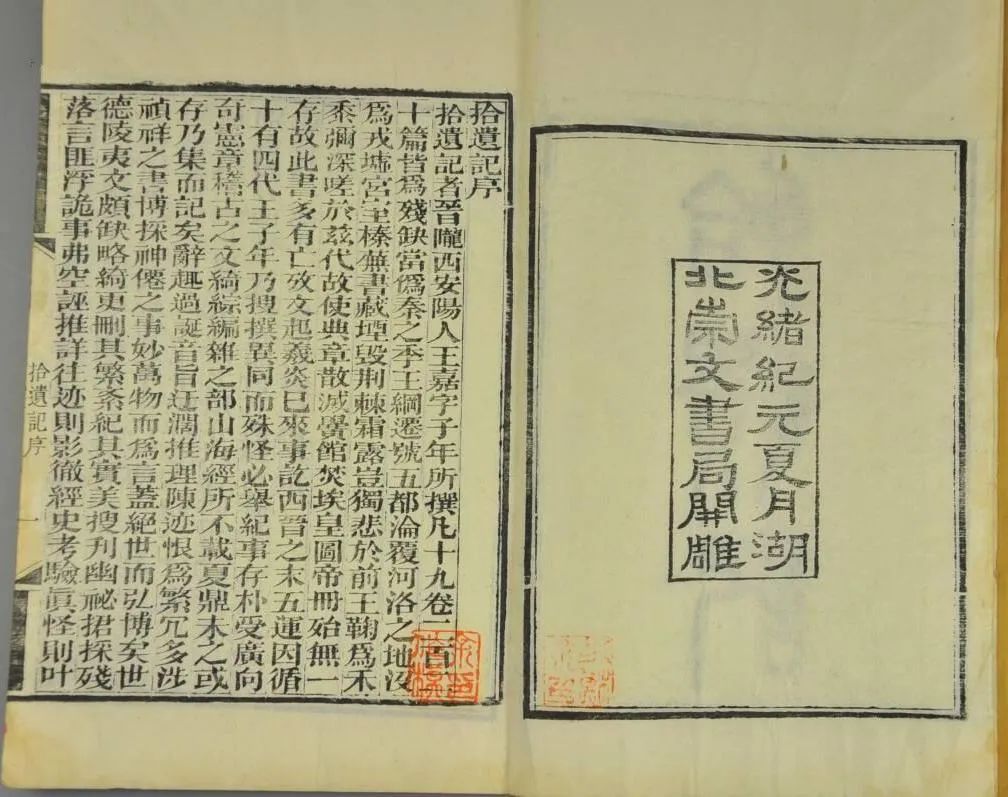 光緒紀元夏月湖
北崇文書局開雕
拾遺記序
拾遺記者晉隴西安陽人王嘉字子年所撰凡十九卷二百二
十篇皆爲殘缺當僞秦之季王綱遷號五都淪覆河洛之地沒
爲戎墟宮室榛蕪書藏堙毀荆棘霜露豈獨悲於前王鞠爲禾
黍彌深嗟於茲代故使典章散滅黌館焚埃皇圖帝冊殆無一
存故此書多有亡攷文起羲炎已來事訖西晉之末五運因循
十有四代王子年乃搜撰異同而殊怪必舉紀事存朴愛廣尚
奇憲章稽古之文綺綜編雜之部山海經所不載夏鼎未之或
存乃集而記矣辭趣過誕音旨迂濶推理陳迹恨爲繁冗多涉
禎祥之書博採神僊之事妙萬物而爲言蓋絕世而弘博矣世
德陵夷文頗缺略綺更刪其繁紊紀其實美搜刊幽祕捃採殘
落言匪浮詭事弗空誣推詳往迹則影徹經史考驗眞怪則叶
拾遺記序
一